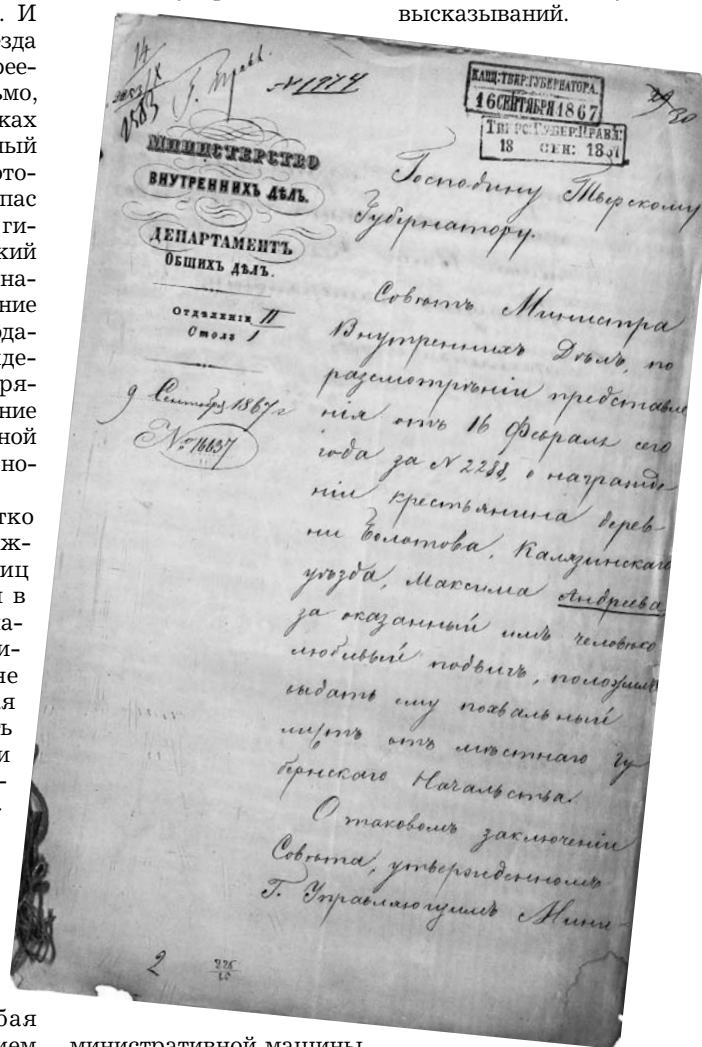 высказываний.
. И
езда
рее-
ьмо,
ках
ный
ото-
пас
ги-
ский
на-
ние
ода-
иде-
ря-
ение
ной
но-
тко
ж-
иц
в
на-
и-
не
ая
ть
и
-
бая
нием
министративной машины
14
2583
№ 1974
КАНЦ: ТВЕР: ГУБЕРНАТОРА.
16 СЕНТЯБРЯ 1867
ТВЕРС: ГУБЕР: ПРАВЛ:
18 СЕН: 1867
30
МИНИСТЕРСТВО
ВНУТРЕННИХЪ ДѢЛЪ.
ДЕПАРТАМЕНТЪ
ОБЩИХЪ ДѢЛЪ.
Отдѣленіе II
Столъ I
9 Сентября 1867 г
№ 16637
Господину Тверскому
Губернатору.
Совѣтъ Министра
Внутреннихъ Дѣлъ, по
разсмотрѣніи представле
нія отъ 16 Февраля сего
года за № 2288, о награжде
ніи крестьянина дерев
ни Болотова, Калязинскаго
уѣзда, Максима Андреева,
за оказанный имъ человѣко
любивый подвигъ, положилъ
выдать ему похвальный
листъ отъ мѣстнаго Гу
бернскаго Начальства.
О таковомъ заключеніи
Совѣта, утвержденномъ
Г. Управляющимъ Мини-
2